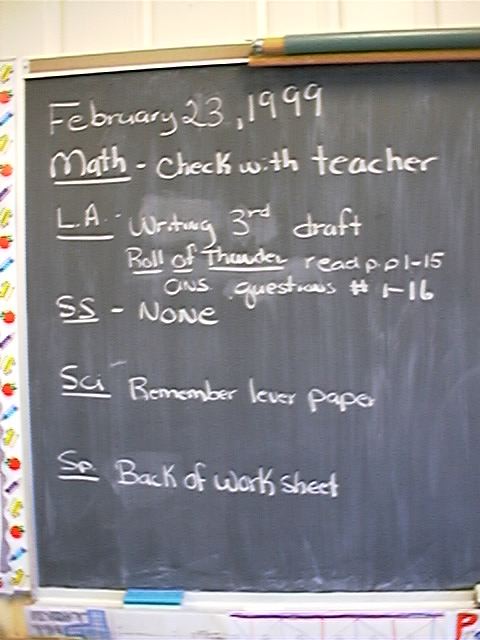 February 23, 1999
Math - Check with teacher
L.A. - Writing 3rd draft
Roll of Thunder read p.p 1-15
ans. questions # 1-16
SS - None
Sci - Remember lever paper
Sp. Back of work sheet
P